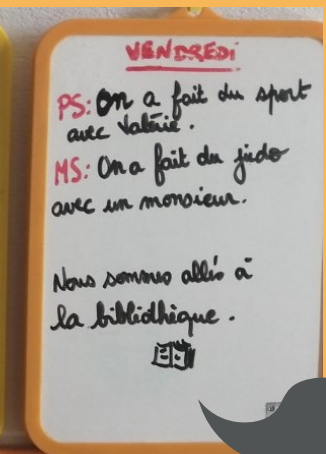 VENDREDI
PS: On a fait du sport
avec Valérie.
MS: On a fait du judo
avec un monsieur.
Nous sommes allés à
la bibliothèque.